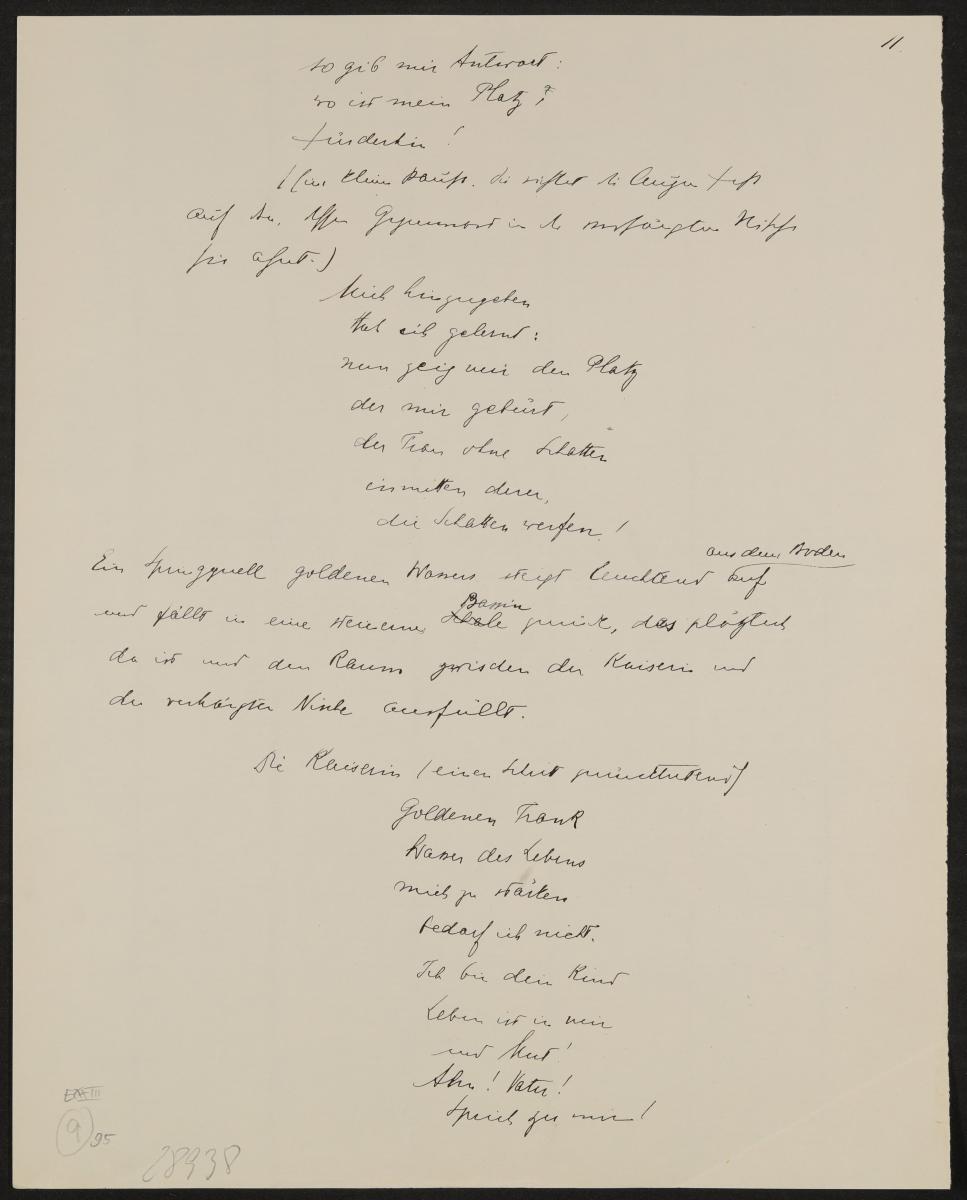 11.
so gib mir Antwort:
wo ist mein Platz?
fürderhin!
(Eine kleine Pause. Sie richtet die Augen fest
auf den, dessen Gegenwart in der verhängten Nische
sie ahnt.)
Mich hinzugeben
Hab ich gelernt:
nun zeig mir den Platz
der mir gebürt,
der Frau ohne Schatten
inmitten derer,
die Schatten werfen!
aus dem Boden
Ein Springquell goldenen Wassers steigt leuchtend auf
Bassin
und fällt in eine steinernes Schale zurück, das plötzlich
da ist und den Raum zwischen der Kaiserin und
der verhängten Nische ausfüllt.
Die Kaiserin (einen Schrit zurücktretend)
Goldenen Trank
Wasser des Lebens
mich zu stärken
bedarf ich nicht.
Ich bin dein Kind
Leben ist in mir
und Mut!
Ahn! Vater!
Sprich zu mir!
III
9
95
28938